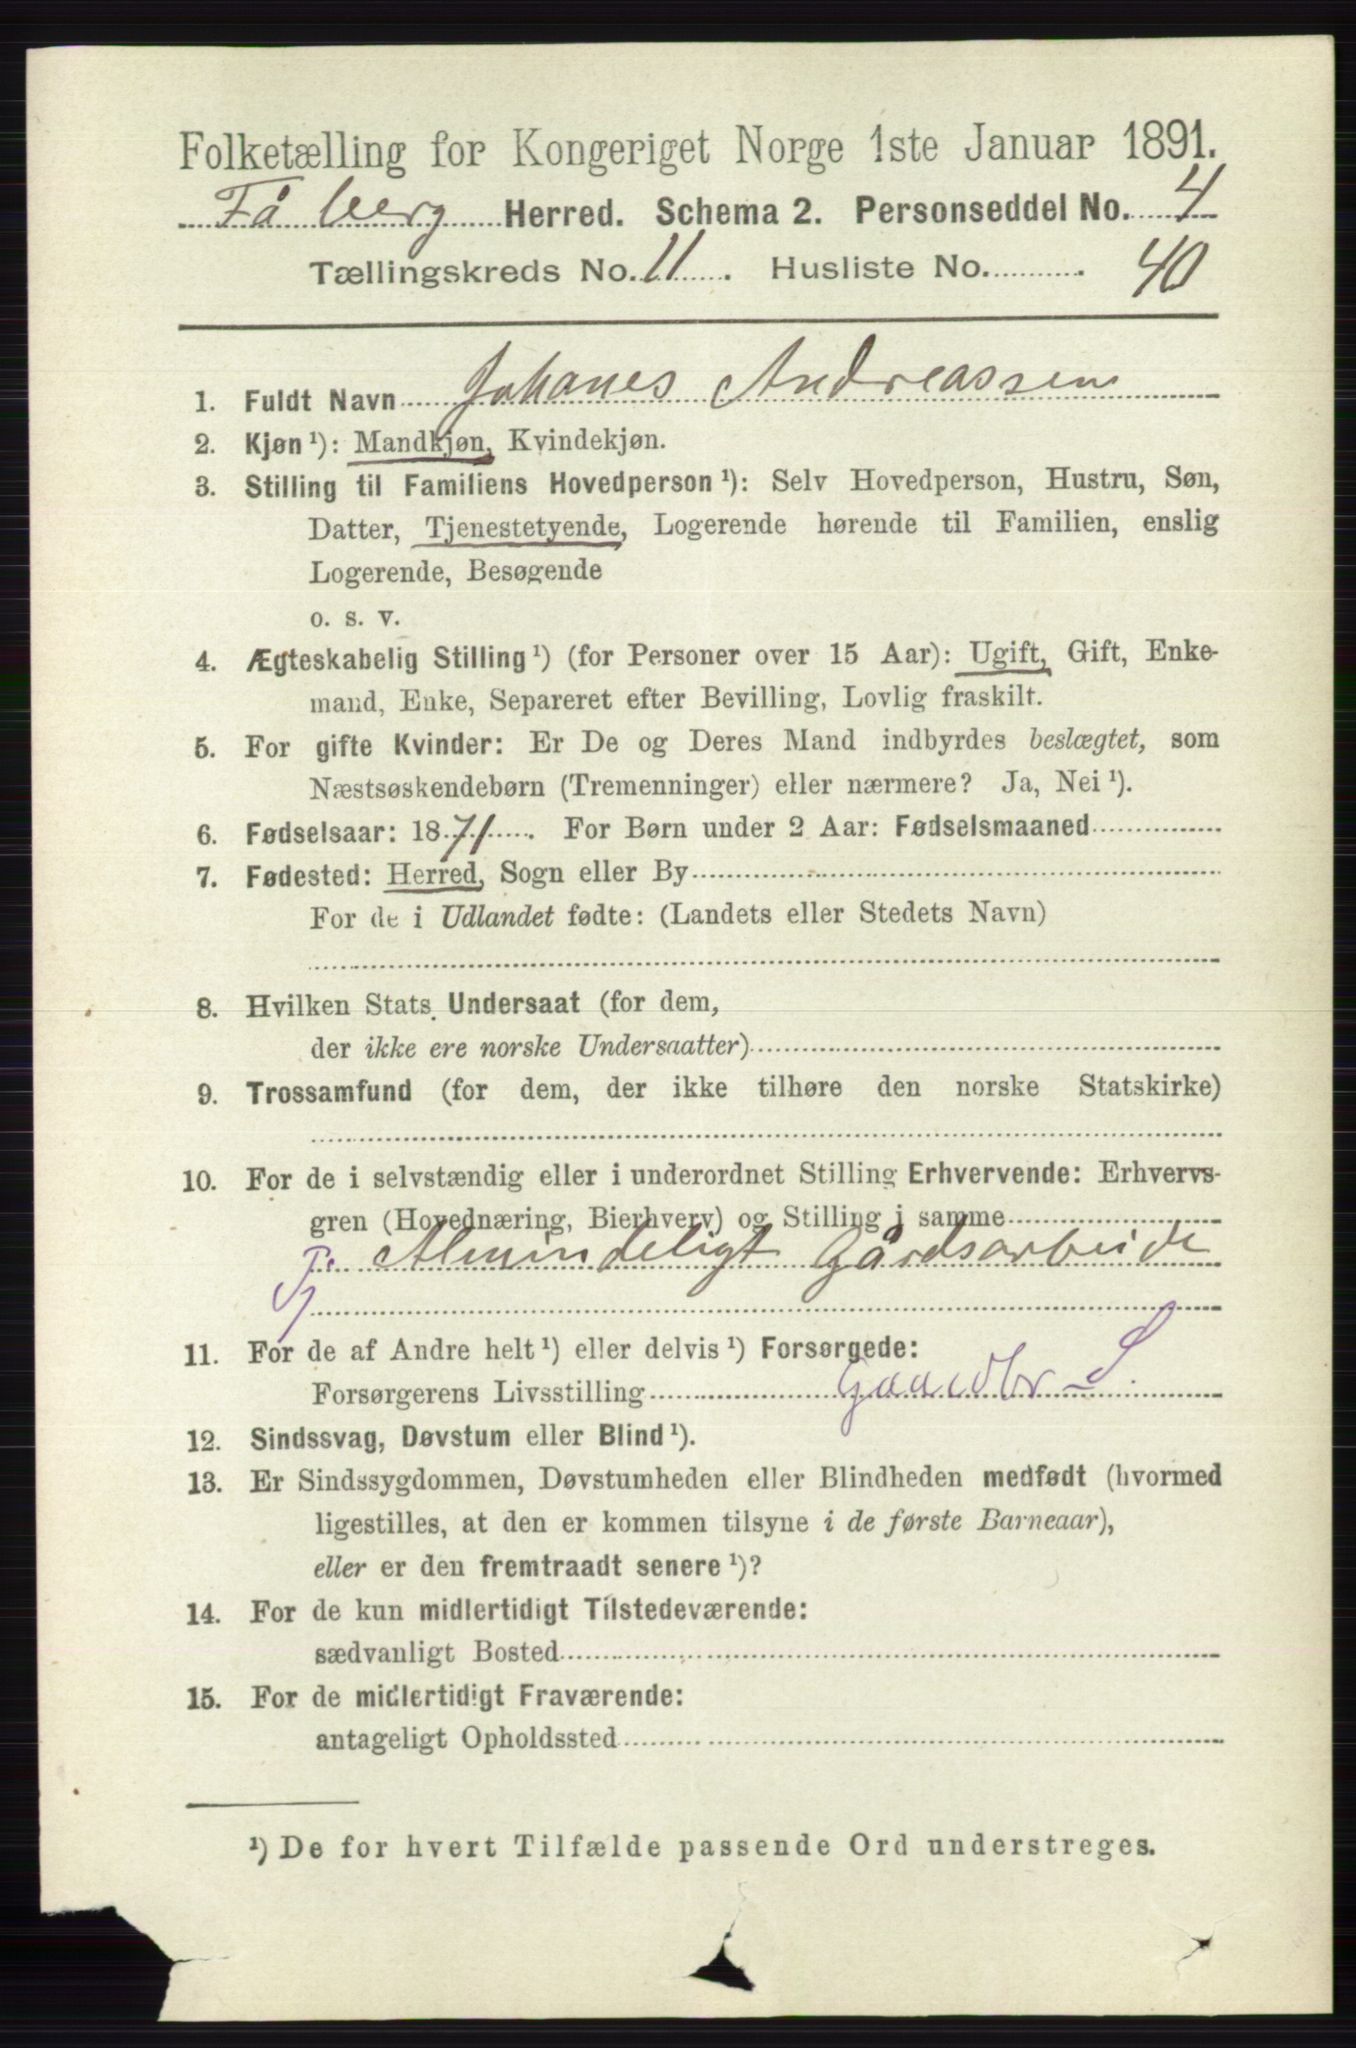 Folketælling for Kongeriget Norge 1ste Januar 1891.
Fåberg Herred. Schema 2. Personseddel No. 4
Tællingskreds No. 11. Husliste No. 40
1. Fuldt Navn Johanes Andreassen
2. Kjøn ¹): Mandkjøn, Kvindekjøn.
3. Stilling til Familiens Hovedperson ¹): Selv Hovedperson, Hustru, Søn,
Datter, Tjenestetyende, Logerende hørende til Familien, enslig
Logerende, Besøgende
o. s. v.
4. Ægteskabelig Stilling ¹) (for Personer over 15 Aar): Ugift, Gift, Enke-
mand, Enke, Separeret efter Bevilling, Lovlig fraskilt.
5. For gifte Kvinder: Er De og Deres Mand indbyrdes beslægtet, som
Næstsøskendebørn (Tremenninger) eller nærmere? Ja, Nei ¹).
6. Fødselsaar: 1871. For Børn under 2 Aar: Fødselsmaaned
7. Fødested: Herred, Sogn eller By
For de i Udlandet fødte: (Landets eller Stedets Navn)
8. Hvilken Stats Undersaat (for dem,
der ikke ere norske Undersaatter)
9. Trossamfund (for dem, der ikke tilhøre den norske Statskirke)
10. For de i selvstændig eller i underordnet Stilling Erhvervende: Erhvervs-
gren (Hovednæring, Bierhverv) og Stilling i samme
Tj. Almindeligt Gårdsarbeide
11. For de af Andre helt ¹) eller delvis ¹) Forsørgede:
Forsørgerens Livsstilling Gaardbr S.
12. Sindssvag, Døvstum eller Blind ¹).
13. Er Sindssygdommen, Døvstumheden eller Blindheden medfødt (hvormed
ligestilles, at den er kommen tilsyne i de første Barneaar),
eller er den fremtraadt senere ¹)?
14. For de kun midlertidigt Tilstedeværende:
sædvanligt Bosted
15. For de midlertidigt Fraværende:
antageligt Opholdssted
¹) De for hvert Tilfælde passende Ord understreges.